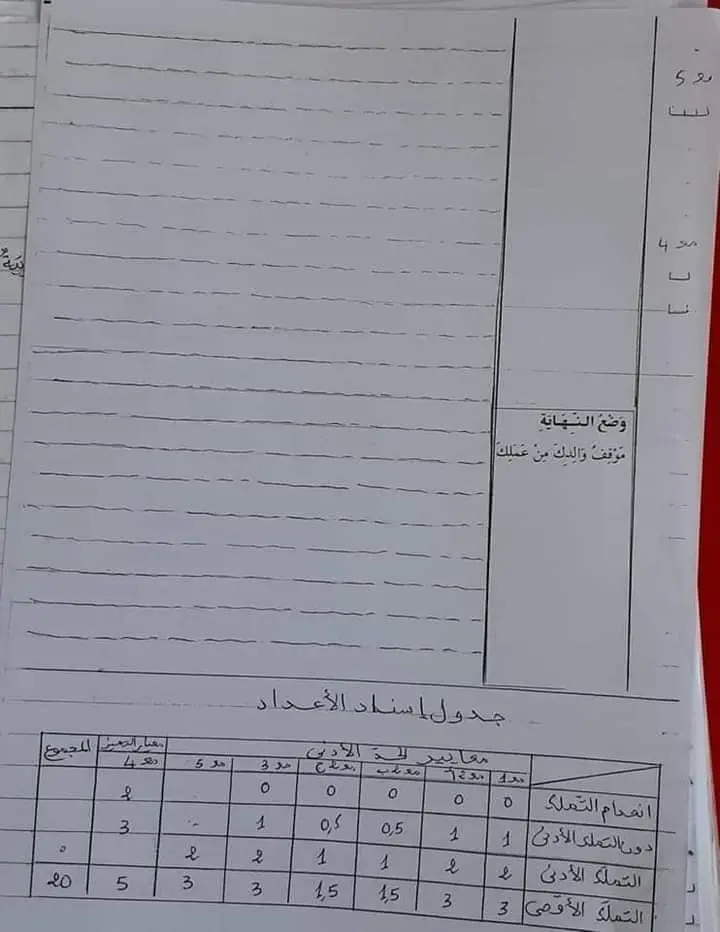 مع 5
مع 4
وَضْعُ النِّهَايَةِ
مَوْقِفُ وَالِدِكَ مِنْ عَمَلِكَ
جدول إسناد الأعداد
معايير الحد الأدنى معيار التميز المجموع
مع 1 مع 2أ مع 2ب مع 2ج مع 3 مع 5 مع 4
انعدام التملك 0 0 0 0 0 2
دون التملك الأدنى 1 1 0,5 0,5 1 3
التملك الأدنى 2 2 1 1 2 2
التملك الأقصى 3 3 1,5 1,5 3 3 5 20